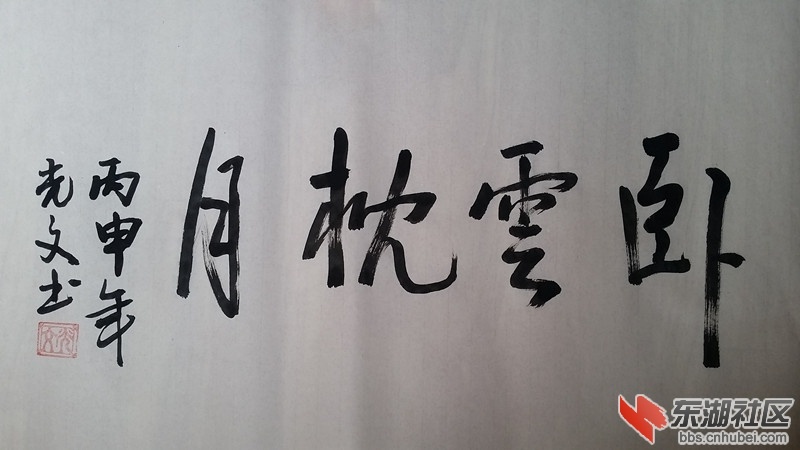 卧雲枕月
丙申年
光文书
东湖社区
bbs.cnhubei.com